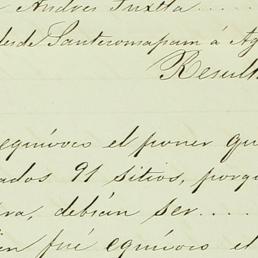 Andrés Tuxtla ......
desde Santecomapam á Ag
Result
equívoco el poner qu
ados 91 sitios, porq
ra, debían ser ....
én fué equívoco el